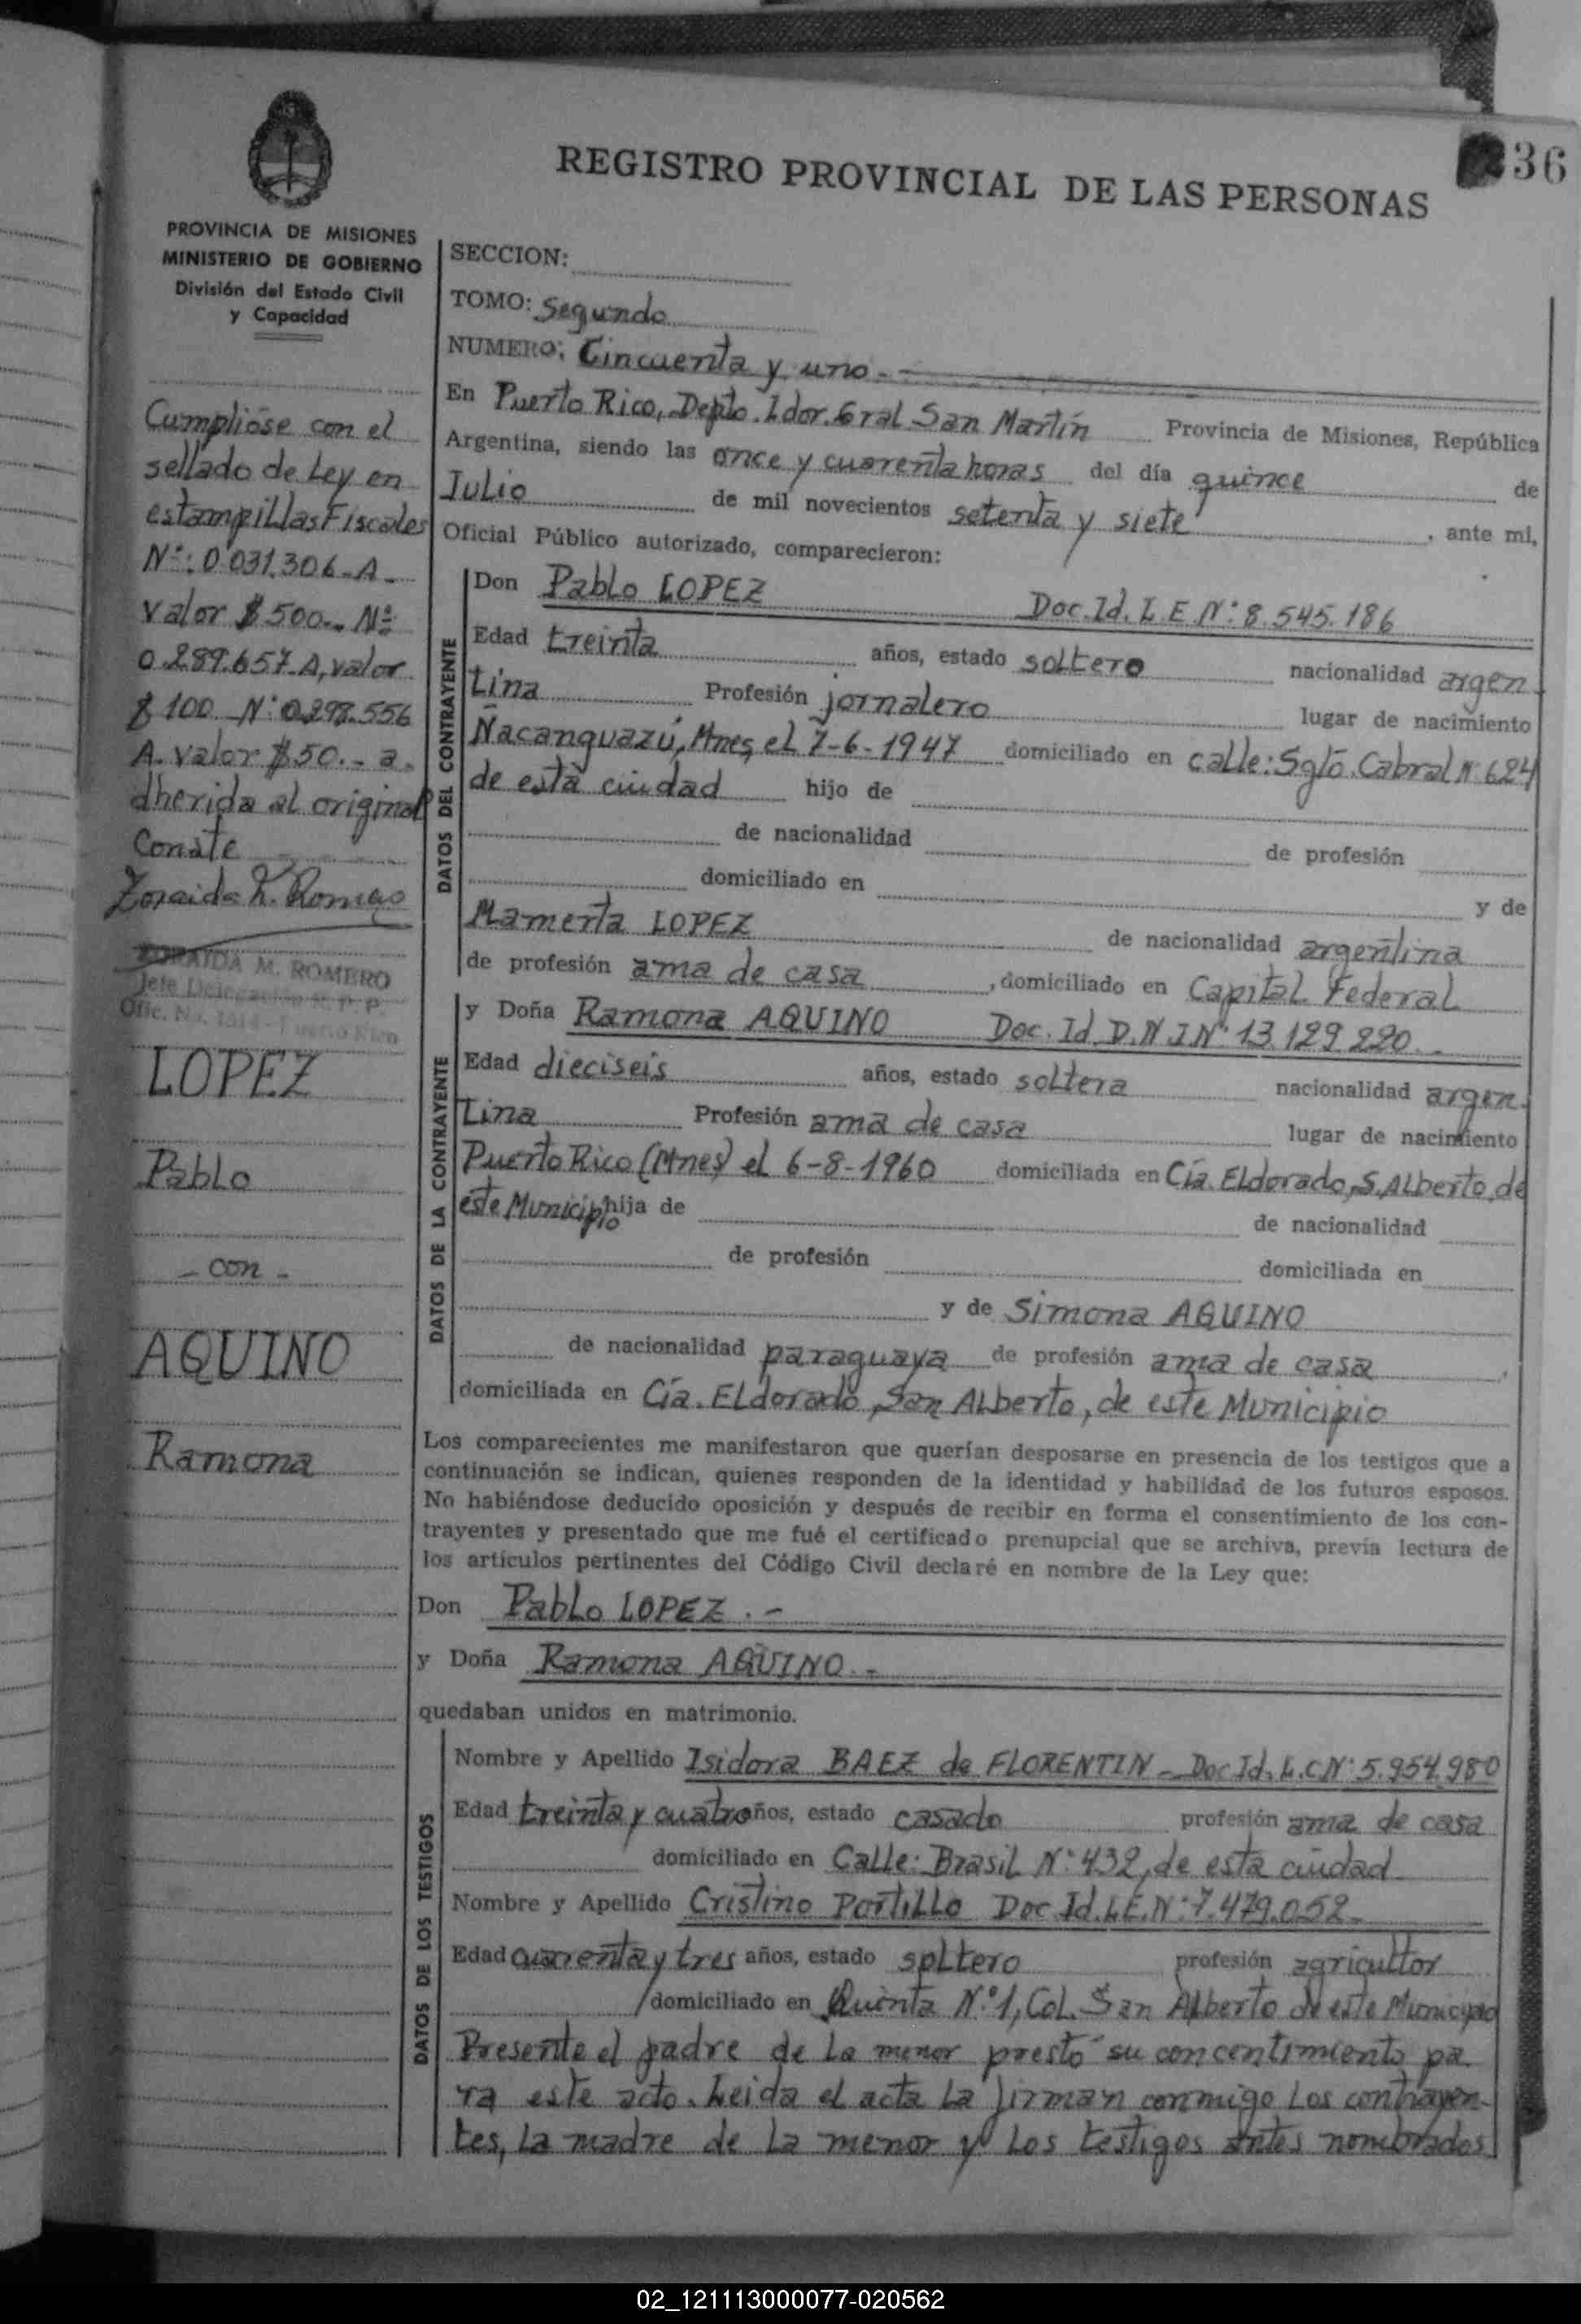 36
REGISTRO PROVINCIAL DE LAS PERSONAS
PROVINCIA DE MISIONES
MINISTERIO DE GOBIERNO
División del Estado Civil
y Capacidad
Cumplióse con el
sellado de Ley en
estampillas Fiscales
Nº: 0031.306-A.
valor $ 500.- Nº
0.289.657-A, valor
$ 100 Nº: 0.298.556
A. valor $50.- a.
dherida al original
Conste
Zoraida M. Romero
ZORAIDA M. ROMERO
Jefe Delegación R. P. P.
LOPEZ
Pablo
- con -
AQUINO
Ramona
SECCION:
TOMO: Segundo
NUMERO: Cincuenta y uno.-
En Puerto Rico, Depto. Ldor. Gral San Martín Provincia de Misiones, República
Argentina, siendo las once y cuarenta horas del día quince de
Julio de mil novecientos setenta y siete, ante mi,
Oficial Público autorizado, comparecieron:
DATOS DEL CONTRAYENTE
Don Pablo LOPEZ Doc. Id. L.E.Nº: 8.545.186
Edad treinta años, estado soltero nacionalidad argen-
tina Profesión jornalero lugar de nacimiento
Ñacanguazú, Mnes, el 7-6-1947 domiciliado en calle: Sgto. Cabral Nº 624
de esta ciudad hijo de
de nacionalidad de profesión
domiciliado en y de
Mamerta LOPEZ de nacionalidad argentina
de profesión ama de casa, domiciliado en Capital Federal
DATOS DE LA CONTRAYENTE
y Doña Ramona AQUINO Doc. Id. D.N.I Nº 13.129.220.-
Edad dieciseis años, estado soltera nacionalidad argen-
tina Profesión ama de casa lugar de nacimiento
Puerto Rico (Mnes) el 6-8-1960 domiciliada en Cía. Eldorado, S. Alberto, de
este Municipio hija de de nacionalidad
de profesión domiciliada en
y de Simona AQUINO
de nacionalidad paraguaya de profesión ama de casa,
domiciliada en Cía. Eldorado, San Alberto, de este Municipio
Los comparecientes me manifestaron que querían desposarse en presencia de los testigos que a
continuación se indican, quienes responden de la identidad y habilidad de los futuros esposos.
No habiéndose deducido oposición y después de recibir en forma el consentimiento de los con-
trayentes y presentado que me fué el certificado prenupcial que se archiva, previa lectura de
los artículos pertinentes del Código Civil declaré en nombre de la Ley que:
Don Pablo LOPEZ.-
y Doña Ramona AQUINO.-
quedaban unidos en matrimonio.
DATOS DE LOS TESTIGOS
Nombre y Apellido Isidora BAEZ de FLORENTIN - Doc Id. L.C Nº: 5.954.980
Edad treinta y cuatro años, estado casado profesión ama de casa
domiciliado en Calle: Brasil Nº: 432, de esta ciudad
Nombre y Apellido Cristino Portillo Doc. Id. L.E. Nº: 7.479.052
Edad cuarenta y tres años, estado soltero profesión agricultor
domiciliado en Quinta N.º 1, Col. San Alberto de este Municipio
Presente el padre de la menor prestó su concentimiento pa-
ra este acto. Leida el acta la firman conmigo los contrayen-
tes, la madre de la menor y los testigos antes nombrados
02_121113000077-020562